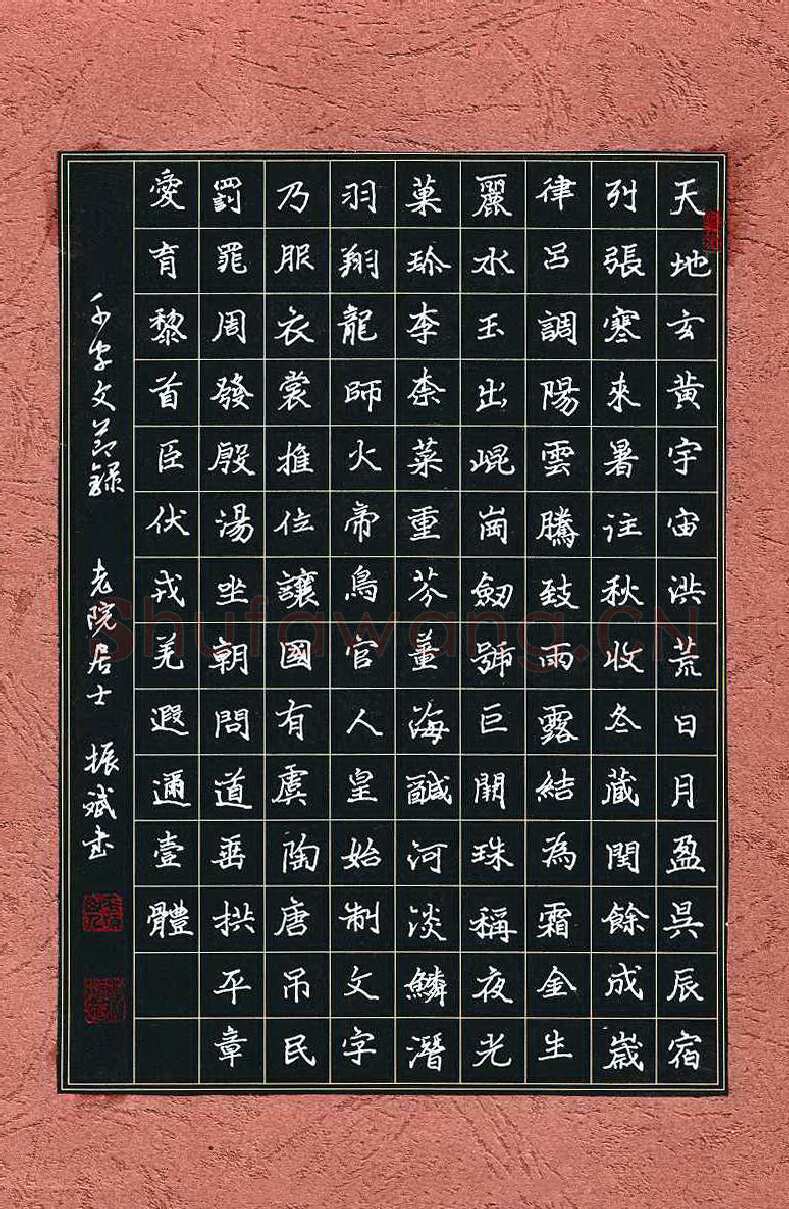 天地玄黃宇宙洪荒日月盈昃辰宿
列張寒來暑往秋收冬藏閏餘成歲
律呂調陽雲騰致雨露結為霜金生
麗水玉出崐崗劒號巨闕珠稱夜光
菓珍李柰菜重芥薑海鹹河淡鱗潛
羽翔龍師火帝鳥官人皇始制文字
乃服衣裳推位讓國有虞陶唐吊民
罰罪周發殷湯坐朝問道垂拱平章
愛育黎首臣伏戎羌遐邇壹體
千字文節錄 老院居士 振斌書
Shufawang.CN